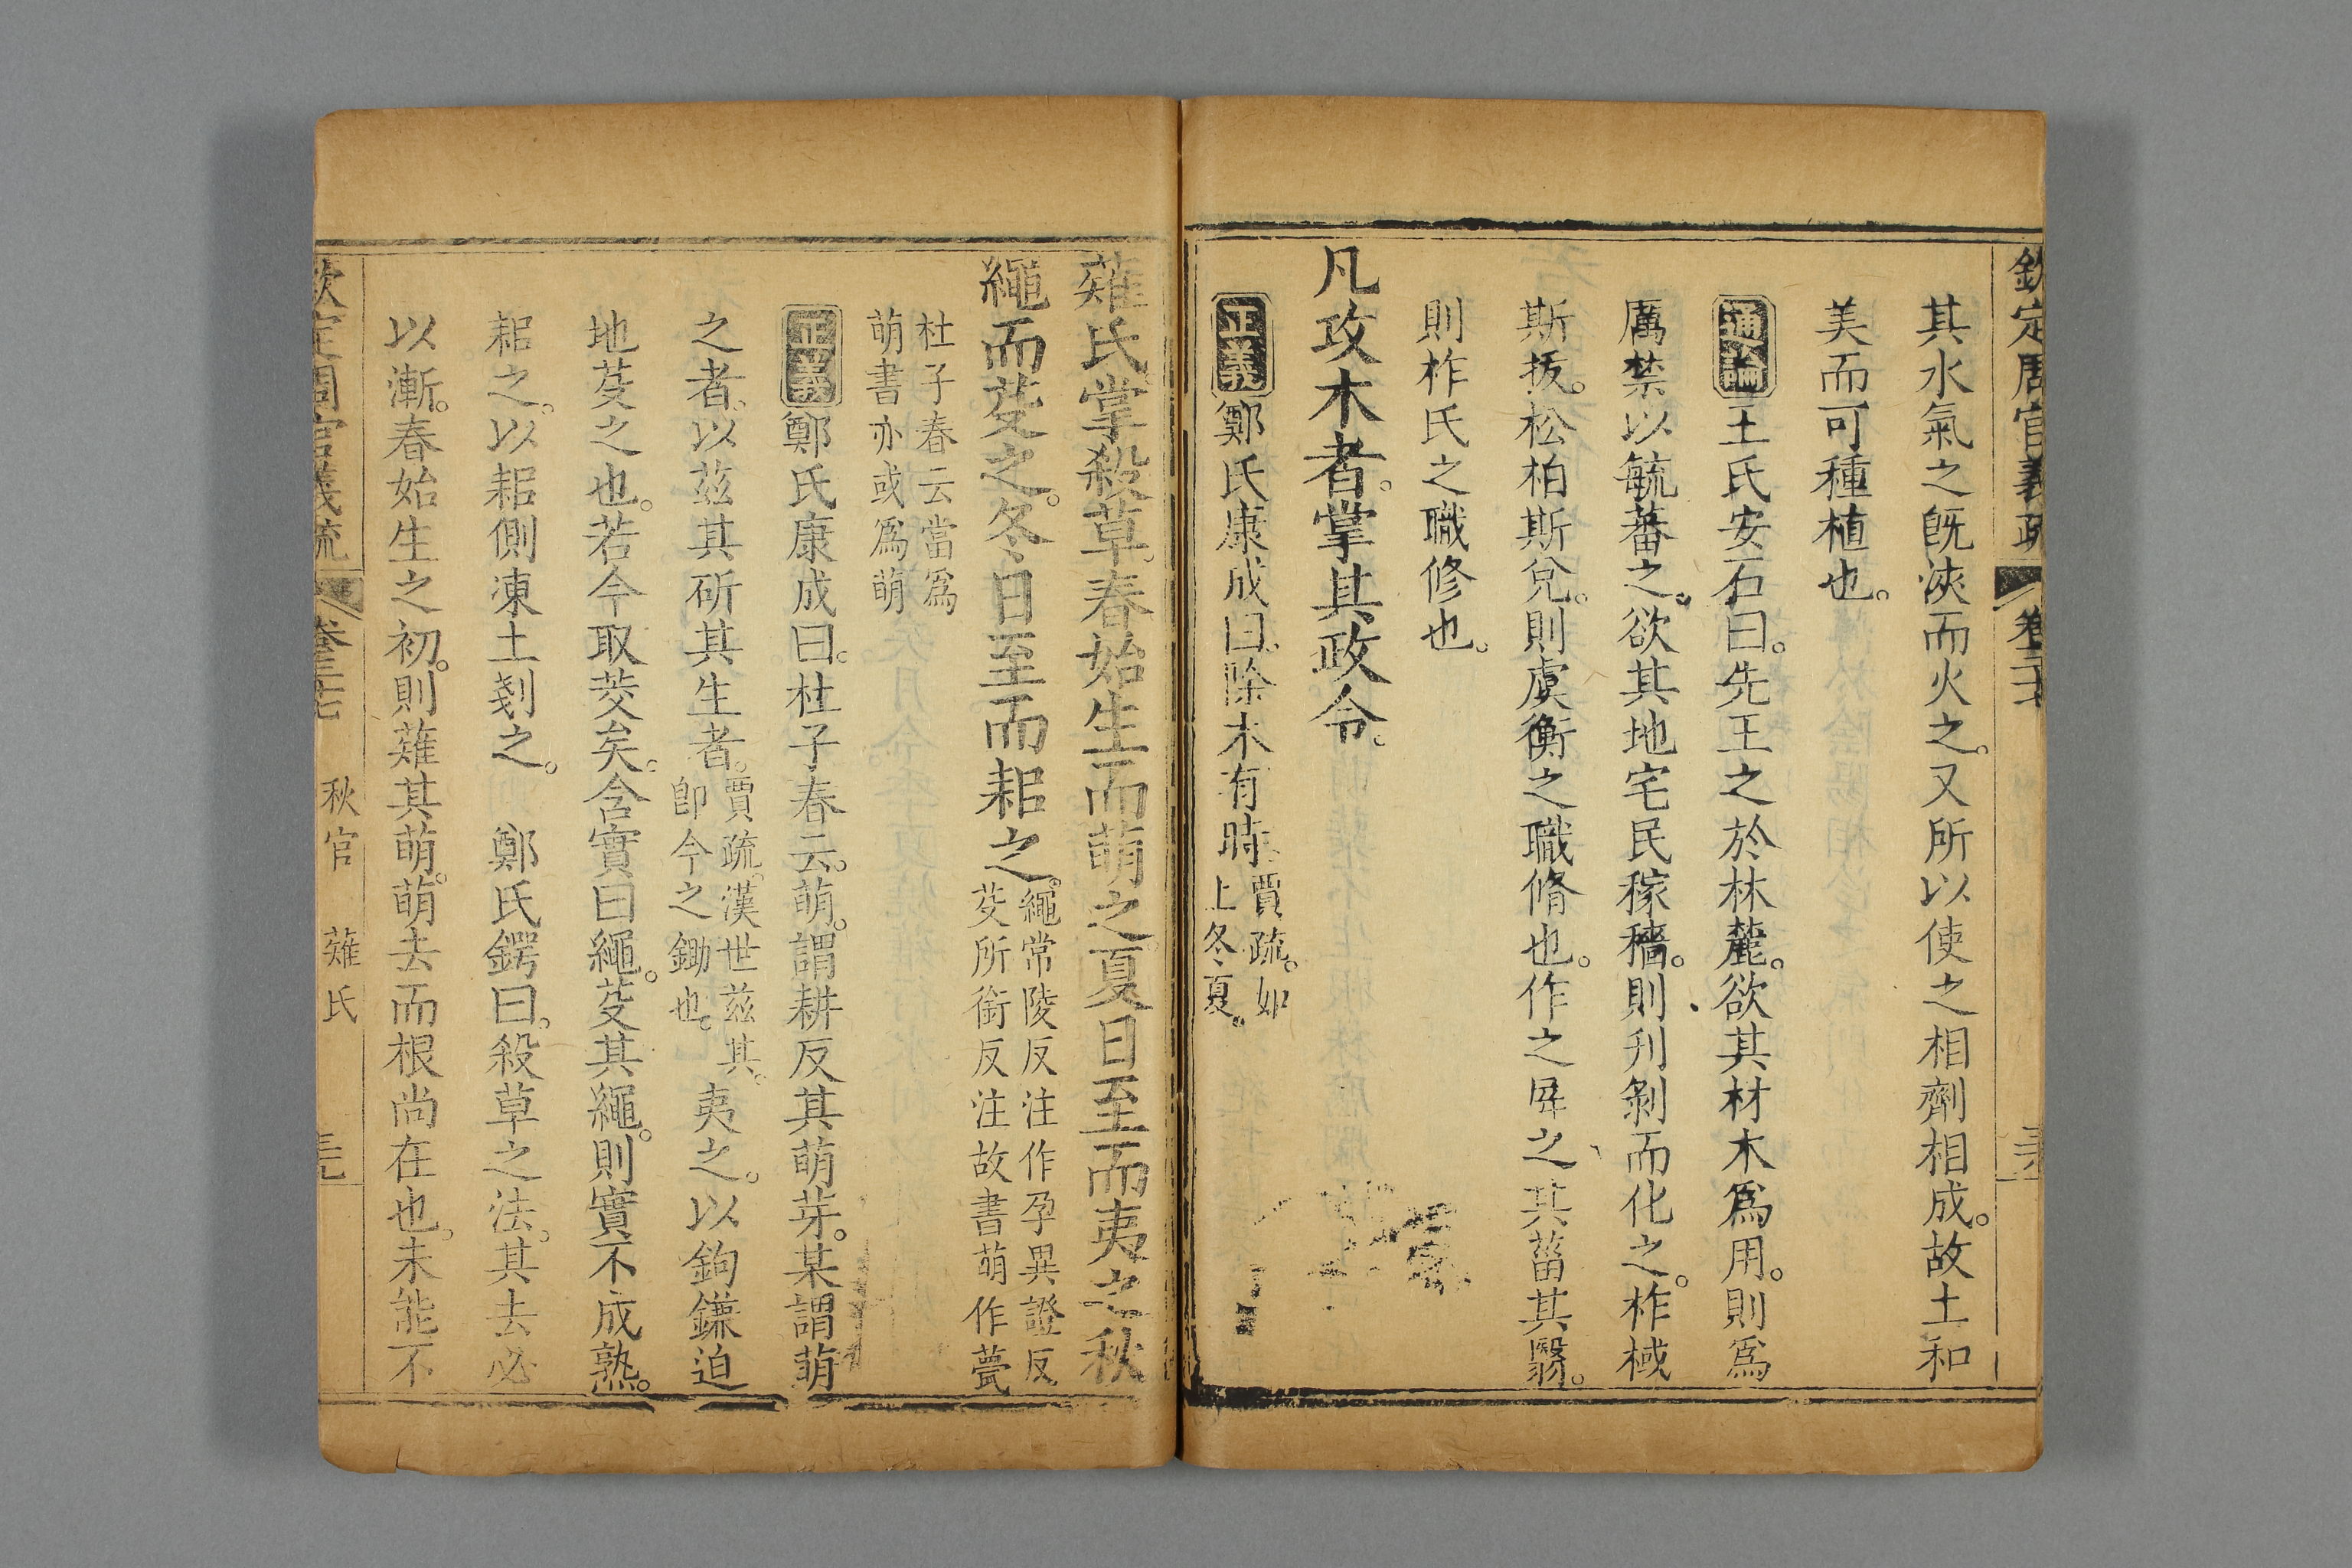 欽定周官義疏 卷三十七
其水氣之旣浹而火之。又所以使之相劑相成。故土和
美而可種植也。
通論 王氏安石曰。先王之於林麓。欲其材木爲用。則爲
厲禁以毓蕃之。欲其地宅民稼穡。則刋剝而化之。柞棫
斯拔。松柏斯兌。則虞衡之職脩也。作之屛之其菑其翳。
則柞氏之職修也。
凡攻木者。掌其政令。
正義 鄭氏康成曰。除木有時。賈疏。如
上冬夏。
薙氏掌殺草。春始生而萌之夏日至而夷之秋
繩而芟之。冬日至而耜之。繩常陵反注作孕異證反
芟所銜反注故書萌作甍
杜子春云當爲
萌書亦或爲萌
正義 鄭氏康成曰。杜子春云。萌。謂耕反其萌芽。某謂萌
之者。以茲其斫其生者。賈疏。漢世茲其。
卽今之鋤也。夷之。以鉤鐮迫
地芟之也。若今取茭矣。含實曰繩。芟其繩。則實不成熟。
耜之。以耜側凍土剗之。 鄭氏鍔曰。殺草之法。其去必
以漸。春始生之初。則薙其萌。萌去而根尚在也。未能不
欽定周官義疏 卷三十七 秋官 薙氏